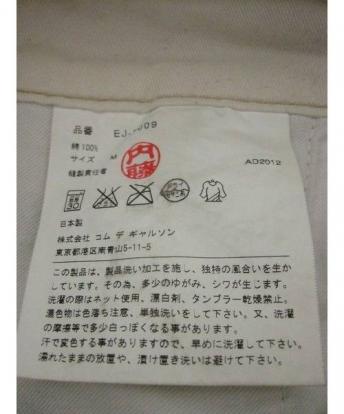 品番 EJ-
綿100%
サイズ M
縫製責任者 内藤
AD2012
30
ドライ
日本製
株式会社 コム デ ギャルソン
東京都港区南青山5-11-5
この製品は、製品洗い加工を施し、独特の風合いを生か
しています。その為、多少のゆがみ、シワが生じます。
洗濯の際はネット使用、漂白剤、タンブラー乾燥禁止。
濃色物は色落ち注意、単独洗いをして下さい。又、洗濯
の摩擦等で多少白っぽくなる事があります。
汗で変色する事がありますので、早めに洗濯して下さい。
濡れたままの放置や、漬け置き洗いは避けて下さい。